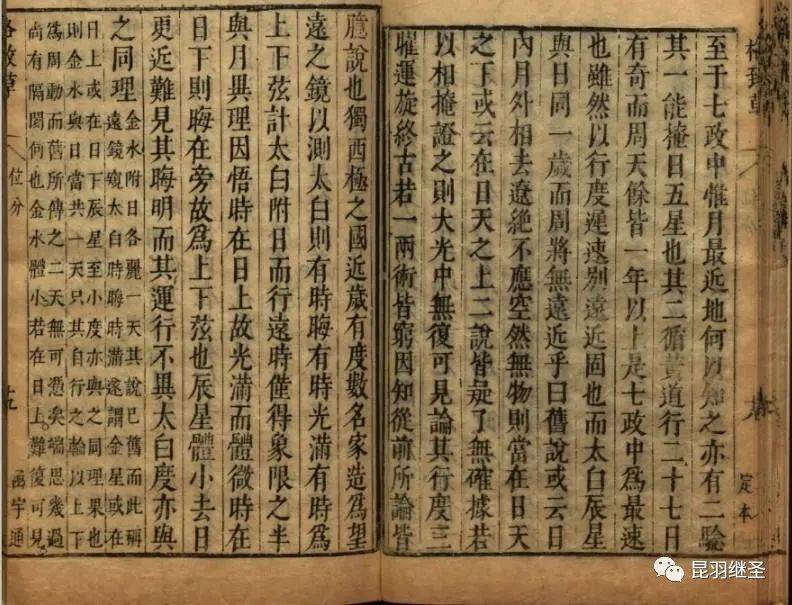 至于七政中惟月最近地何以知之亦有二驗
其一能掩日五星也其二循黃道行二十七日
有奇而周天餘皆一年以上是七政中為最速
也雖然以行度遲速別遠近固也而太白辰星
與日同一歲而周將無遠近乎曰舊說或云日
內月外相去遼絕不應空然無物則當在日天
之下或云在日天之上二說皆疑了無確據若
以相掩證之則大光中無復可見論其行度三
曜運旋終古若一兩術皆窮因知從前所論皆
臆說也獨西極之國近歲有度數名家造為望
遠之鏡以測太白則有時晦有時光滿有時為
上下弦計太白附日而行遠時僅得象限之半
與月異理因悟時在日上故光滿而體微時在
日下則晦在旁故為上下弦也辰星體小去日
更近難見其晦明而其運行不異太白度亦與
之同理
金水附日各麗一天其說已舊而此稱
遠鏡窺太白時晦時滿遂謂金星或在
日上或在日下辰星至小度亦與之同理果也
則金水與日當共一天只其自行之輪以上下
為周動而舊所傳之二天無可憑矣端思幾過
尚有隔閡何也金水體小若在日上難復可見
格致草
位分
十九
函宇通
格致草
定本
昆羽继圣